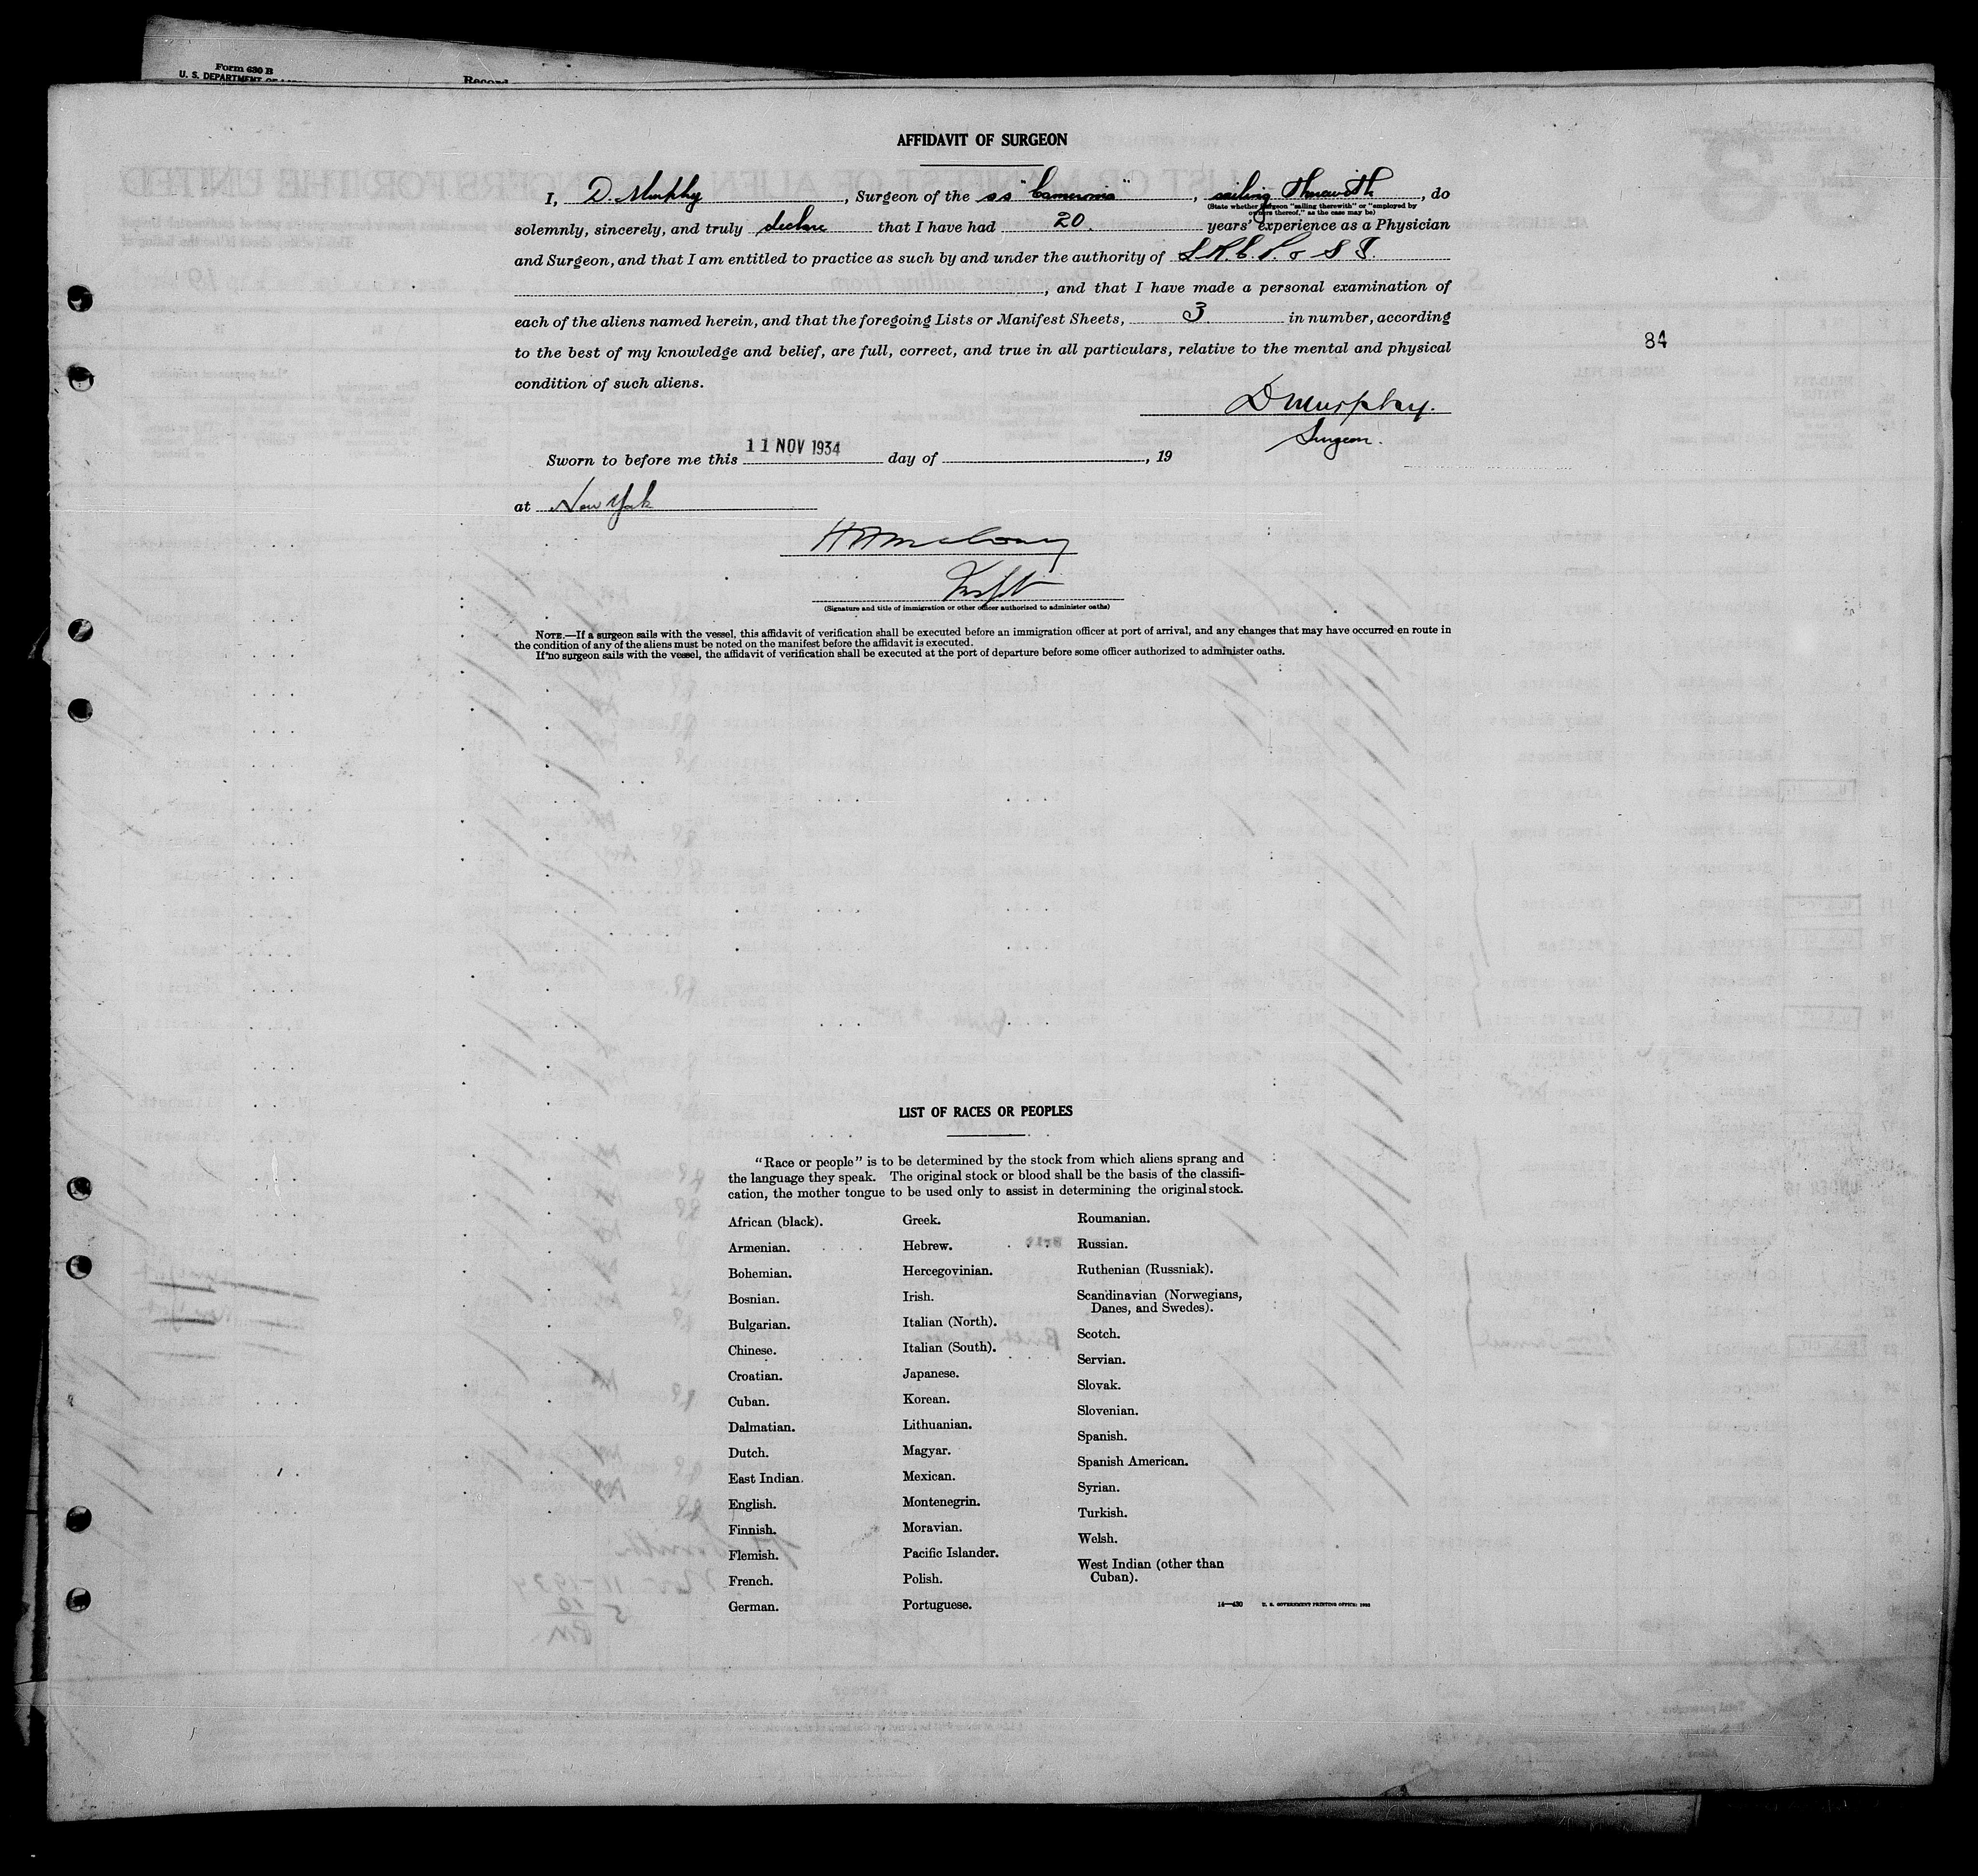 Form 630 B
U. S. DEPARTMENT OF
Record
AFFIDAVIT OF SURGEON
I, D. Murphy, Surgeon of the ss "Cameronia", sailing therewith, do
(State whether surgeon "sailing therewith" or "employed by
owners thereof," as the case may be)
solemnly, sincerely, and truly declare that I have had 20. years' experience as a Physician
and Surgeon, and that I am entitled to practice as such by and under the authority of L.R.C.P. & S I.
, and that I have made a personal examination of
each of the aliens named herein, and that the foregoing Lists or Manifest Sheets, 3 in number, according
84
to the best of my knowledge and belief, are full, correct, and true in all particulars, relative to the mental and physical
condition of such aliens.
D Murphy.
Surgeon.
Sworn to before me this 11 NOV 1934 day of , 19
at New York
(Signature and title of immigration or other officer authorized to administer oaths)
NOTE.—If a surgeon sails with the vessel, this affidavit of verification shall be executed before an immigration officer at port of arrival, and any changes that may have occurred en route in
the condition of any of the aliens must be noted on the manifest before the affidavit is executed.
If no surgeon sails with the vessel, the affidavit of verification shall be executed at the port of departure before some officer authorized to administer oaths.
LIST OF RACES OR PEOPLES
"Race or people" is to be determined by the stock from which aliens sprang and
the language they speak. The original stock or blood shall be the basis of the classifi-
cation, the mother tongue to be used only to assist in determining the original stock.
African (black).
Armenian.
Bohemian.
Bosnian.
Bulgarian.
Chinese.
Croatian.
Cuban.
Dalmatian.
Dutch.
East Indian.
English.
Finnish.
Flemish.
French.
German.
Greek.
Hebrew.
Hercegovinian.
Irish.
Italian (North).
Italian (South).
Japanese.
Korean.
Lithuanian.
Magyar.
Mexican.
Montenegrin.
Moravian.
Pacific Islander.
Polish.
Portuguese.
Roumanian.
Russian.
Ruthenian (Russniak).
Scandinavian (Norwegians,
Danes, and Swedes).
Scotch.
Servian.
Slovak.
Slovenian.
Spanish.
Spanish American.
Syrian.
Turkish.
Welsh.
West Indian (other than
Cuban).
14—430 U. S. GOVERNMENT PRINTING OFFICE: